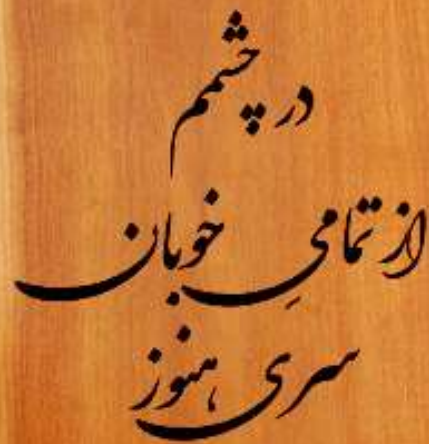 در چشمم
از تمامیِ خوبان
سری ، هنوز